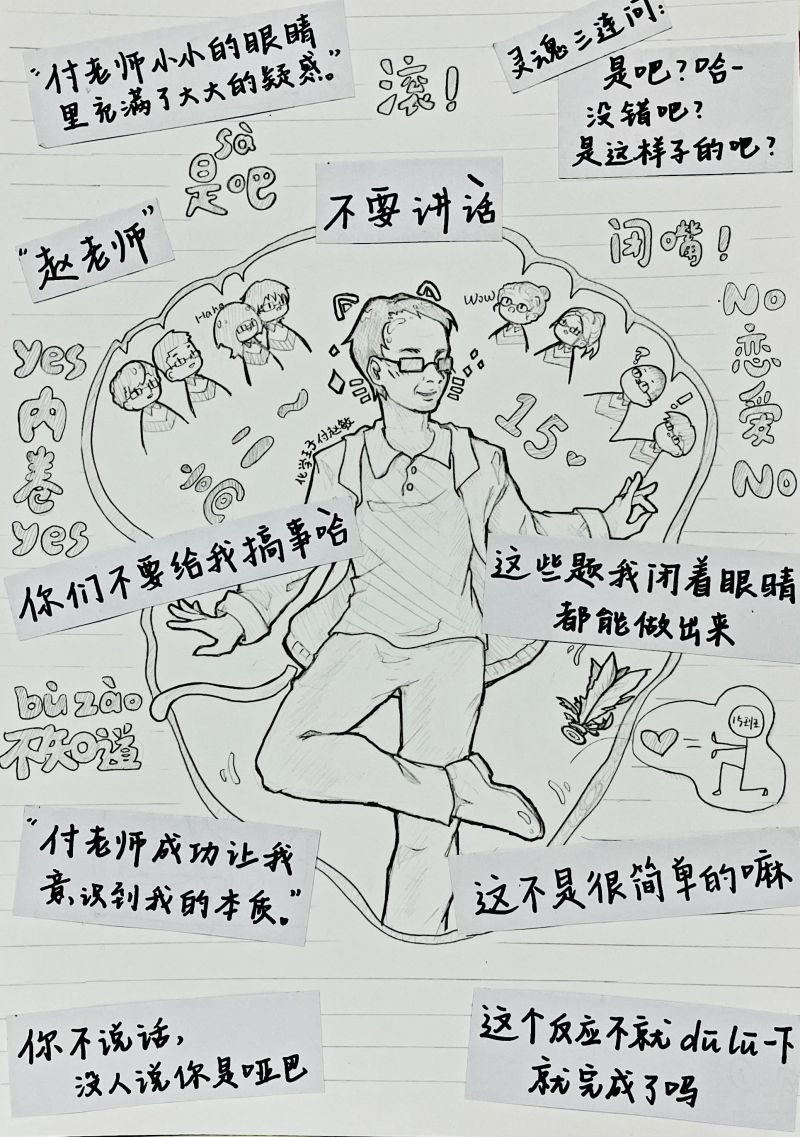 “付老师小小的眼睛
里充满了大大的疑惑。”
滚！
灵魂三连问：
是吧？哈~
没错吧？
是这样子的吧？
sà
是吧
不要讲话
“赵老师”
闭嘴！
Haha
Wow
yes
内
卷
yes
No
恋
爱
No
?
!
15
化学王子付赵敏
你们不要给我搞事哈
这些题我闭着眼睛
都能做出来
bù zào
不知道
15班
=
“付老师成功让我
意识到我的本质。”
这不是很简单的嘛
你不说话，
没人说你是哑巴
这个反应不就dū lū一下
就完成了吗